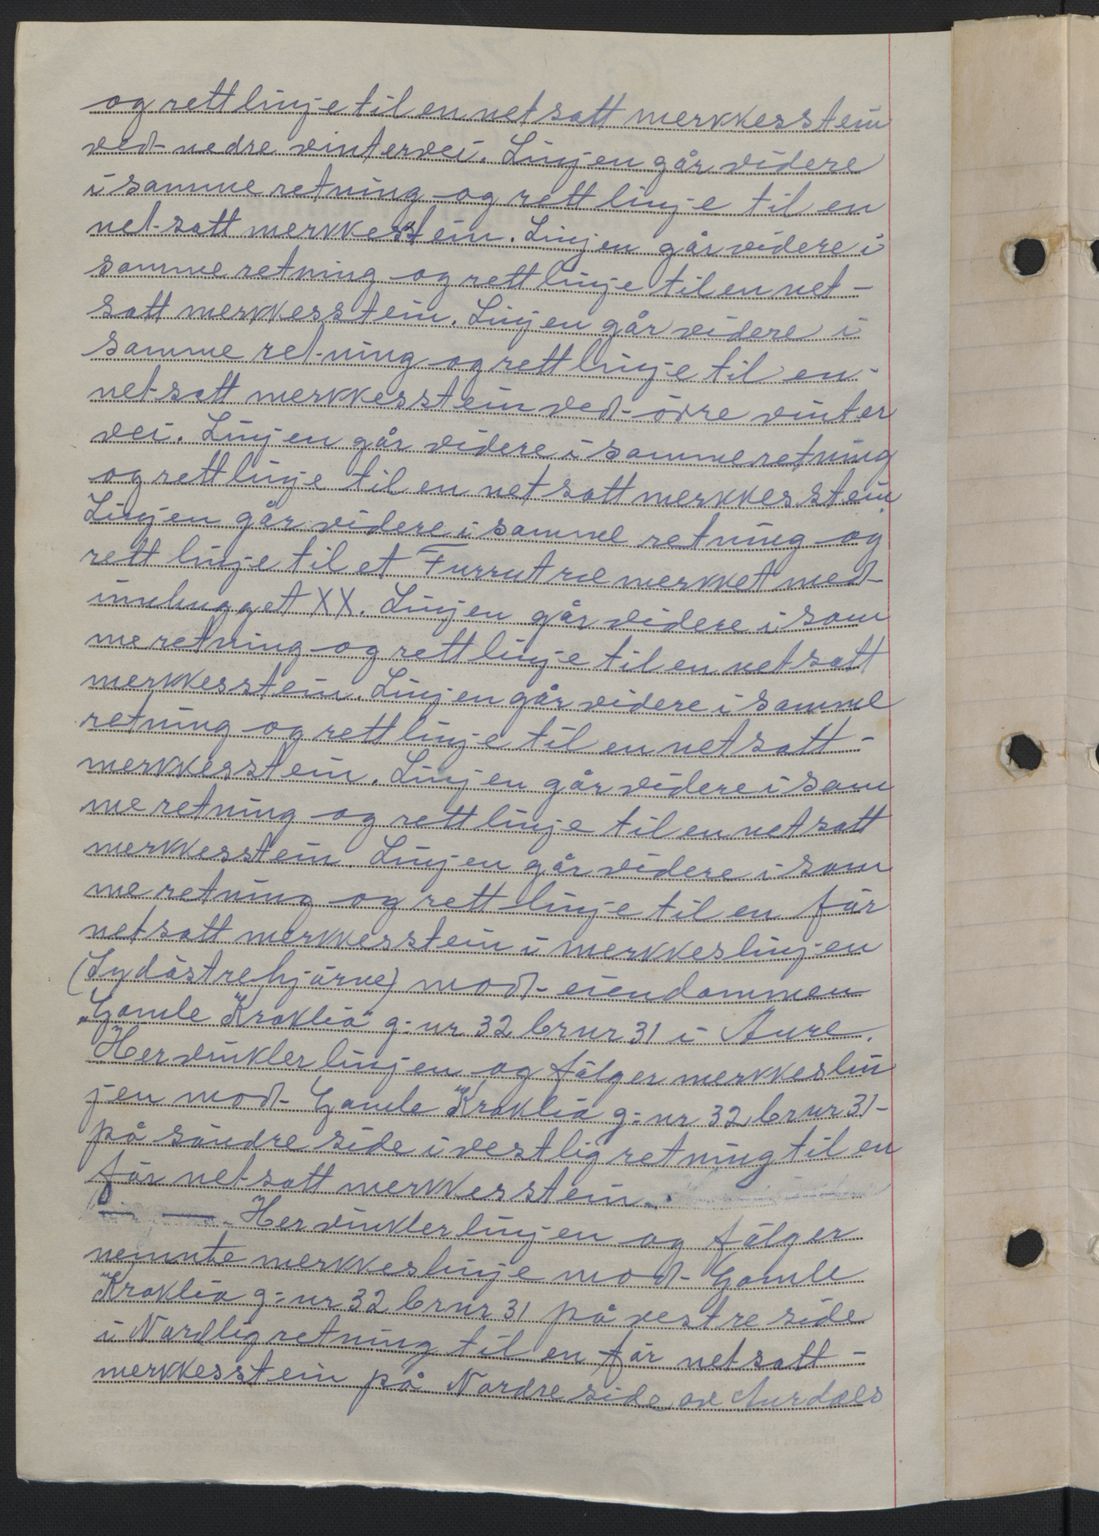 og rett linje til en netsatt merkkesstein
ved nedre vintervei. Linjen går videre
i samme retning og rett linje til en
netsatt merkkesstein. Linjen går videre i
samme retning og rett linje til en net-
satt merkkesstein. Linjen går videre i
samme retning og rett linje til en
netsatt merkkesstein ved övre vinter
vei. Linjen går videre i samme retning
og rett linje til en netsatt merkkesstein
Linjen går videre i samme retning og
rett linje til et Furrutræ merkket med
innhugget XX. Linjen går videre i sam
me retning og rett linje til en netsatt
merkkesstein. Linjen går videre i samme
retning og rett linje til en netsatt-
merkkesstein. Linjen går videre i sam
me retning og rett linje til en netsatt
merkkesstein. Linjen går videre i sam
me retning og rett linje til en får
netsatt merkkesstein i merkkeslinjen
(Sydåstrehjärne) mod eiendommen
"Gamle Kraklia" g:nr 32 brnr 31 i Aure.
Her vinkler linjen og fålger merkkeslin
jen mod Gamle Kraklia g:nr 32 brnr 31-
på såndre side i vestlig retning til en
får netsatt merkkesstein.
Her vinkler linjen og fålger
nemnte merkkeslinje mod Gamle
Kraklia g:nr 32 brnr 31 på vestre side
i Nardlig retning til en får netsatt-
merkkesstein på Nardre side av Aurdals